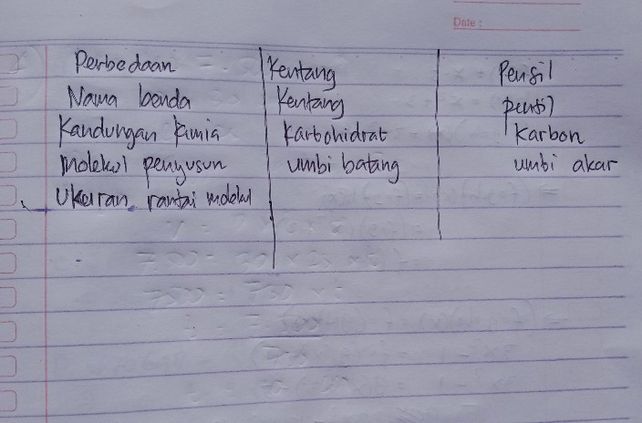 Date :
Perbedaan Kentang Pensil
Nama benda Kentang pensil
Kandungan kimia Karbohidrat Karbon
molekul penyusun umbi batang umbi akar
Ukuran rantai molekul